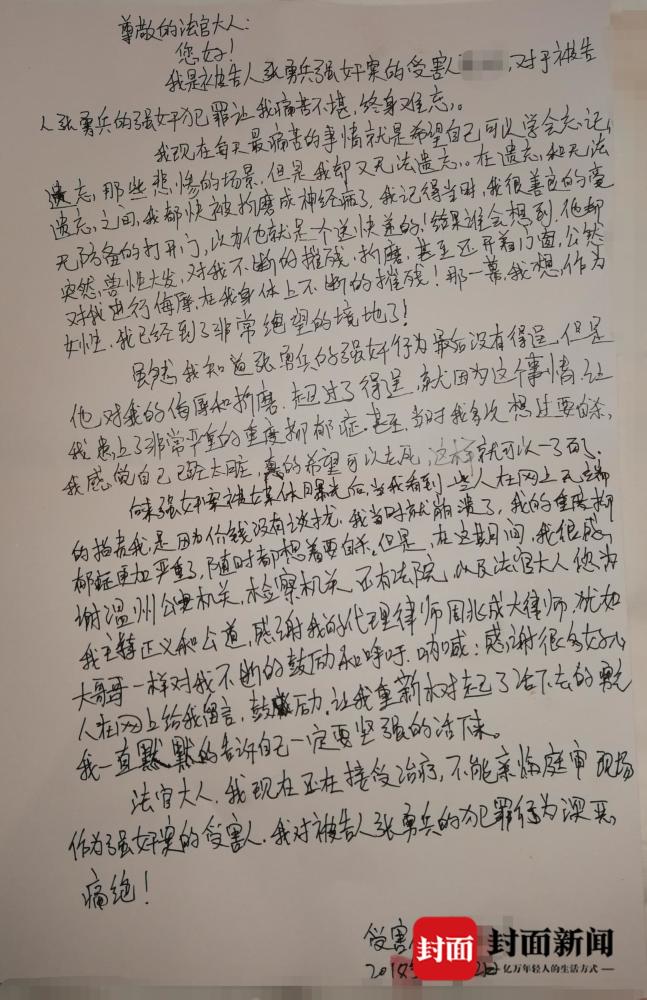 尊敬的法官大人：
您好！
我是被告人张勇兵强奸案的受害人，对于被告
人张勇兵的强奸犯罪让我痛苦不堪，终身难忘。
我现在每天最痛苦的事情就是希望自己可以学会忘记，
遗忘，那些悲惨的场景，但是我却又无法遗忘。在遗忘和无法
遗忘之间，我都快被折磨成神经病了，我记得当时，我很善良的毫
无防备的打开门，以为他就是一个送快递的！结果谁会想到，他却
突然，兽性大发，对我不断的摧残，折磨，甚至还开着门窗，公然
对我进行侮辱，在我身体上不断的摧残！那一幕，我想，作为
女性，我已经到了非常绝望的境地了！
虽然我知道张勇兵的强奸行为最后没有得逞，但是
他对我的侮辱和折磨，超过了得逞，就因为这个事情，让
我患上了非常严重的重度抑郁症，甚至，当时我多次想过要自杀，
我感觉自己已经太脏，真的希望可以去死，这样就可以一了百了。
后来强奸案被媒体曝光后，当我看到一些人在网上无端
的指责我是因为价钱没有谈拢，我当时就崩溃了，我的重度抑
郁症更加严重了，随时都想着要自杀。但是，在这期间，我很感
谢温州公安机关，检察机关，还有法院，以及法官大人你为
我主持正义和公道，感谢我的代理律师周兆成大律师，犹如
大哥哥一样对我不断的鼓励和呼吁，呐喊；感谢很多好心
人在网上给我留言，鼓励，让我重新树起了活下去的勇气
我一直默默的告诉自己一定要坚强的活下来。
法官大人，我现在正在接受治疗，不能亲临庭审现场
作为强奸案的受害人，我对被告人张勇兵的犯罪行为深恶
痛绝！
受害
封面
封面新闻
亿万年轻人的生活方式